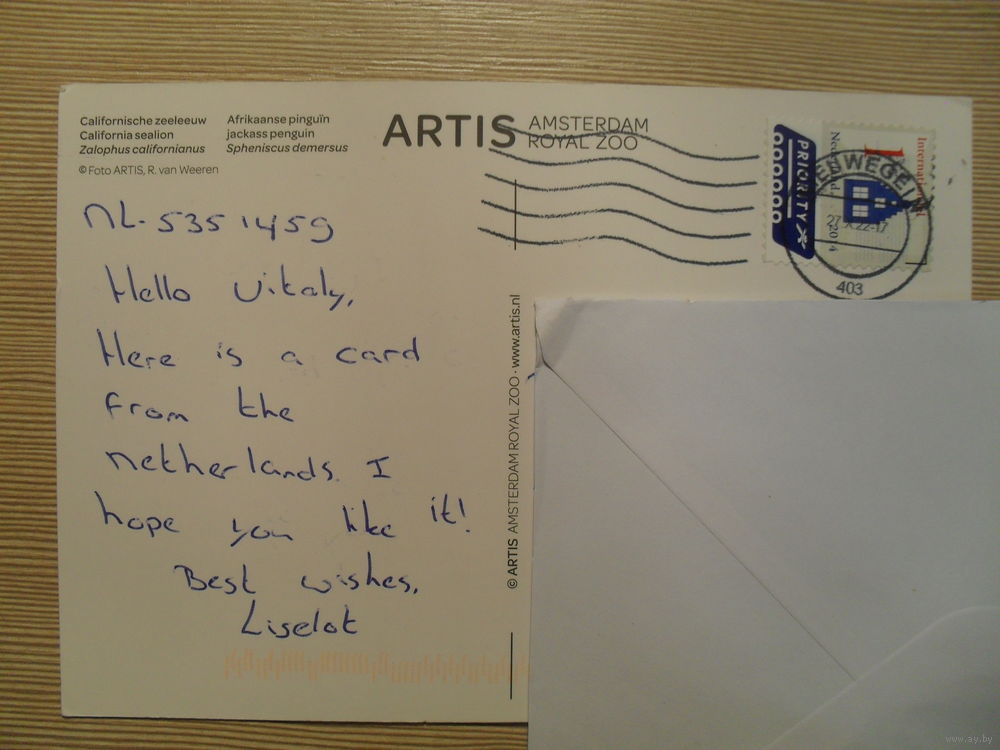 Californische zeeleeuw
California sealion
Zalophus californianus
© Foto ARTIS, R. van Weeren
Afrikaanse pinguïn
jackass penguin
Spheniscus demersus
ARTIS AMSTERDAM
ROYAL ZOO
PRIORITY
Internationaal
1
Nederland
2014
403
NL-5351459
Hello Vitaly,
Here is a card
from the
netherlands. I
hope you like it!
Best wishes,
Liselot
© ARTIS AMSTERDAM ROYAL ZOO · www.artis.nl
www.ay.by